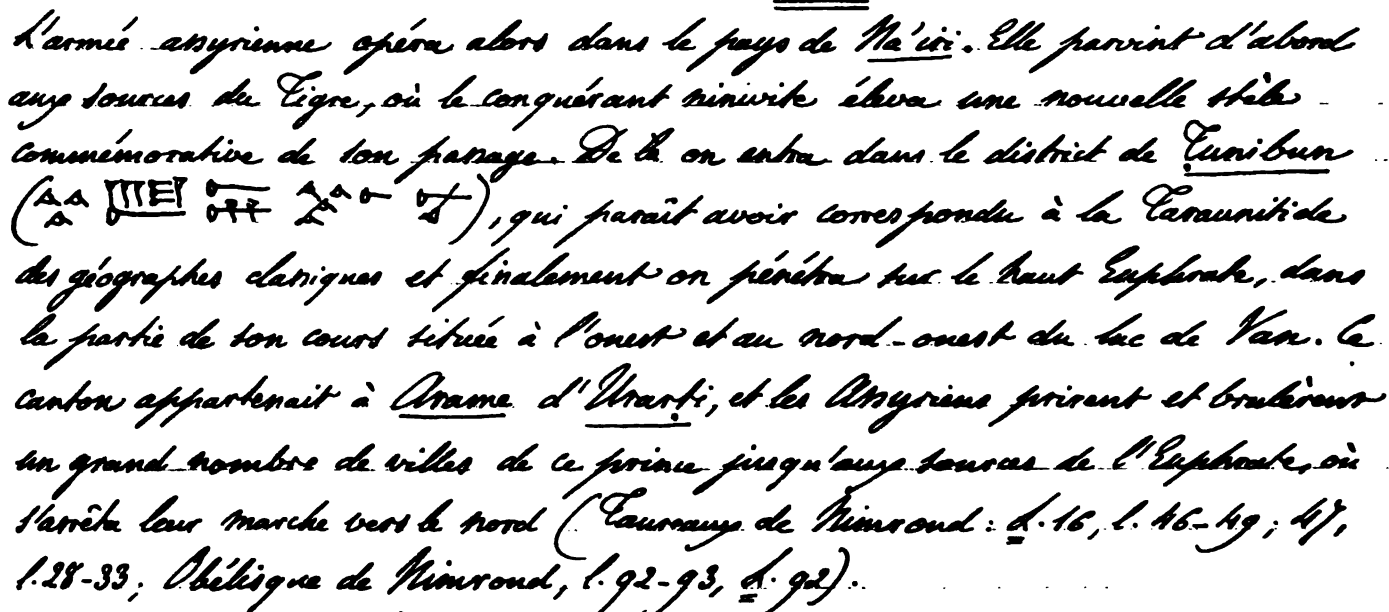 L'armée assyrienne opéra alors dans le pays de Na'iri. Elle parvint d'abord
aux sources du Tigre, où le conquérant ninivite éleva une nouvelle stèle
commémorative de son passage. De là on entra dans le district de Ṭunibun
( ), qui paraît avoir correspondu à la Taraunitide
des géographes classiques et finalement on pénétra sur le haut Euphrate, dans
la partie de son cours située à l'ouest et au nord-ouest du lac de Van. Ce
canton appartenait à Arame d'Urarṭi, et les Assyriens prirent et brulèrent
un grand nombre de villes de ce prince jusqu'aux sources de l'Euphrate, où
s'arrêta leur marche vers le nord (Taureaux de Nimroud: L. 16, l. 46-49; 47,
l. 28-33; Obélisque de Nimroud, l. 92-93, L. 92).